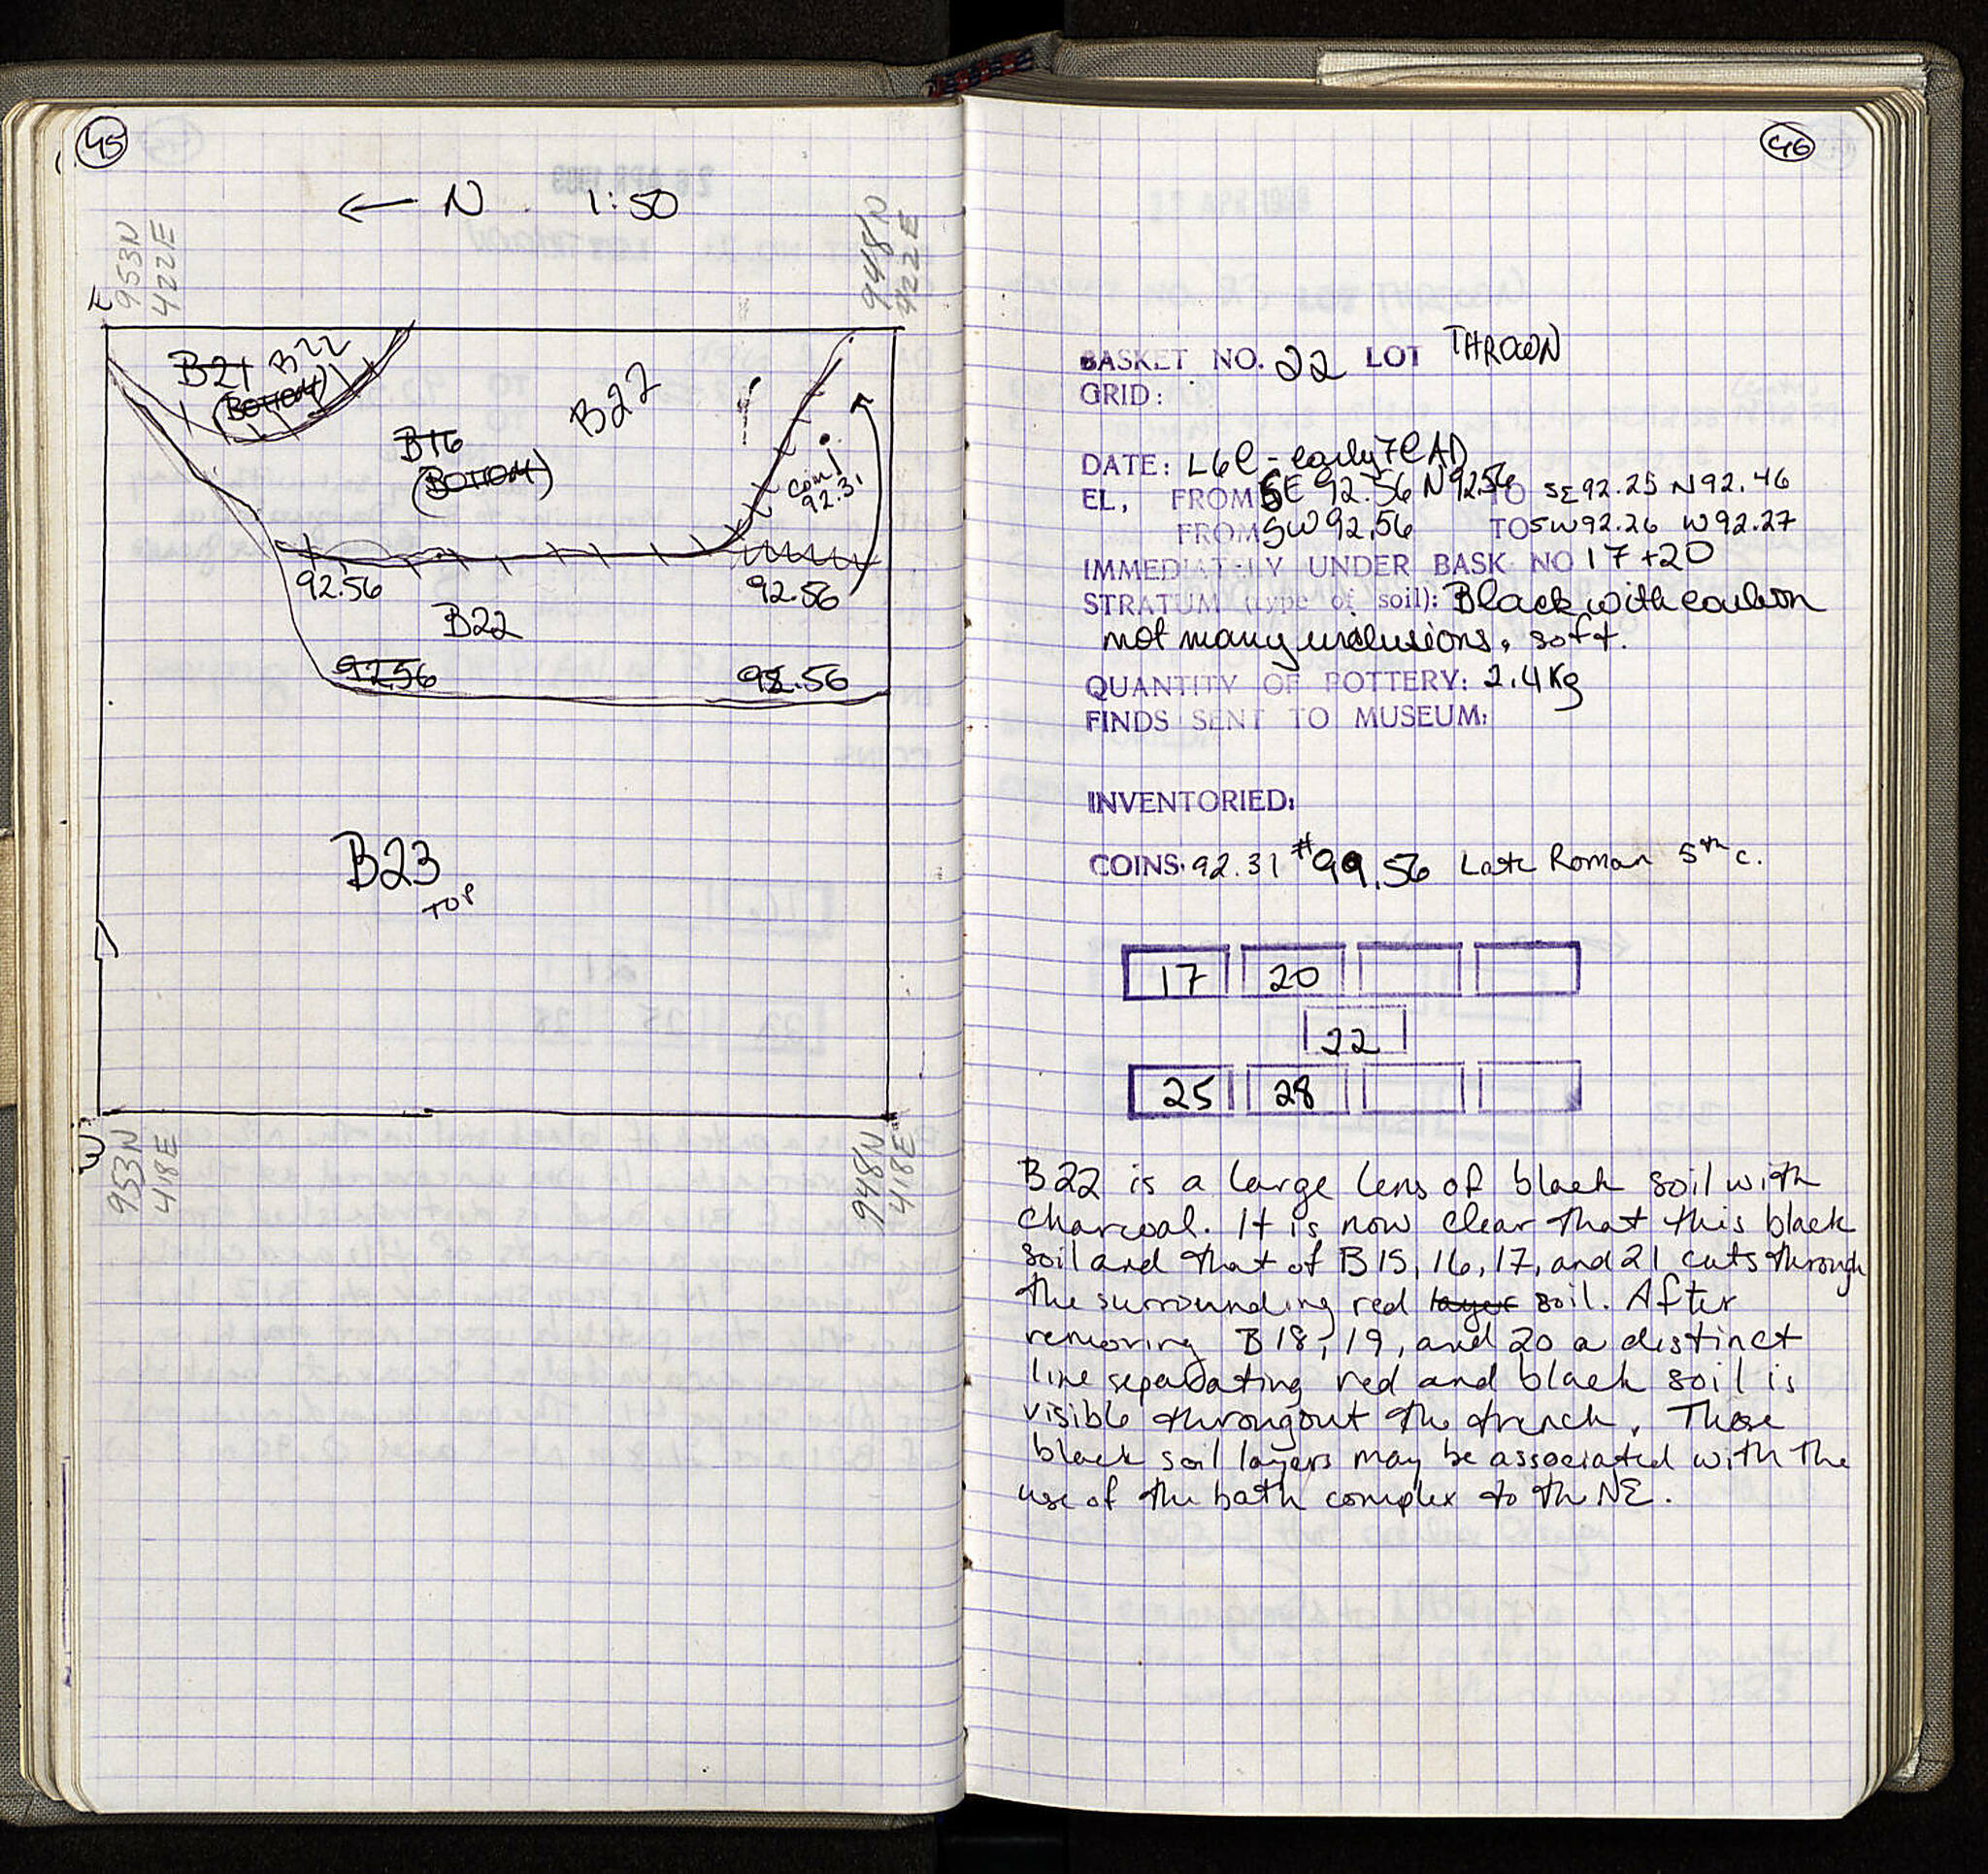 45
← N 1:50
953N
422E
948N
922E
E
B21 B22
(BOTTOM)
B22
B16
(BOTTOM)
coin!
92.31
92.56
92.56
B22
92.56
92.56
B23
TOP
W
953N
418E
948N
418E
46
BASKET NO. 22 LOT THROWN
GRID:
DATE: L6C - early 7C AD
EL, FROM SE 92.56 N 92.56 TO SE 92.25 N 92.46
FROM SW 92.56 TO SW 92.26 W 92.27
IMMEDIATELY UNDER BASK NO 17 + 20
STRATUM (type of soil): Black with carbon
not many inclusions, soft.
QUANTITY OF POTTERY: 2.4 Kg
FINDS SENT TO MUSEUM:
INVENTORIED:
COINS: 92.31 #99.56 Late Roman 5th c.
17 20
22
25 28
B22 is a large lens of black soil with
charcoal. It is now clear that this black
soil and that of B15, 16, 17, and 21 cuts through
the surrounding red layer soil. After
removing B18, 19, and 20 a distinct
line separating red and black soil is
visible througout the trench. These
black soil layers may be associated with the
use of the bath complex to the NE.